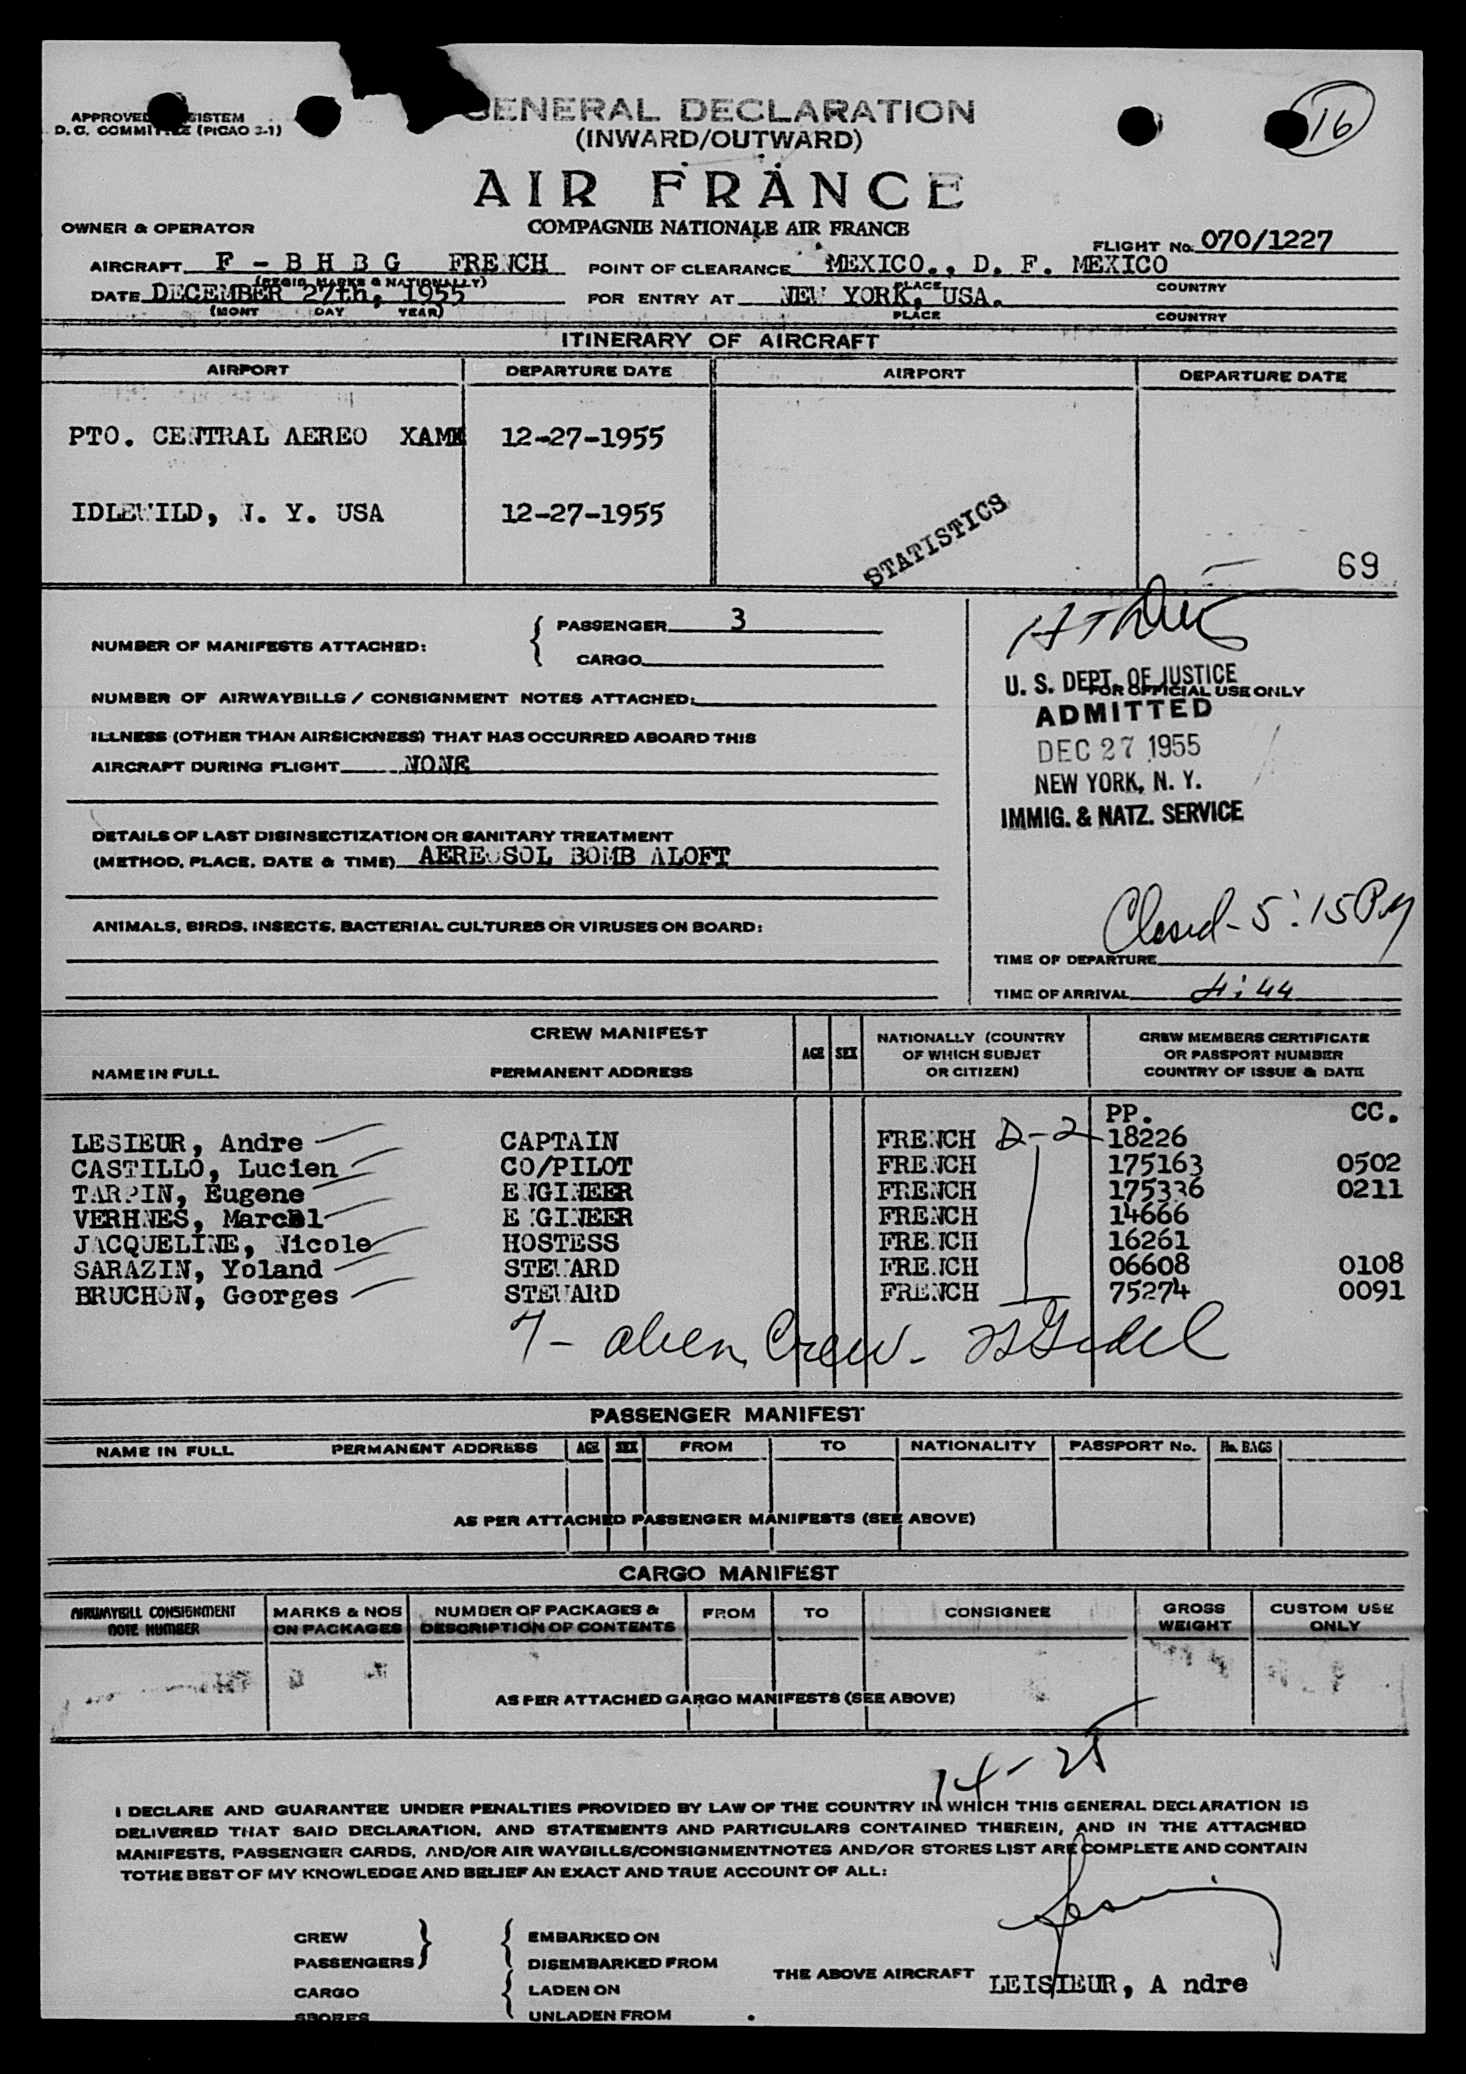 GENERAL DECLARATION
(INWARD/OUTWARD)
16
D. C. COMMITTEE (PICAO 2-1)
AIR FRANCE
COMPAGNIE NATIONALE AIR FRANCE
OWNER & OPERATOR
FLIGHT No. 070/1227
AIRCRAFT F - B H B G FRENCH POINT OF CLEARANCE MEXICO., D. F. MEXICO
(REGIS. MARKS & NATIONALLY) PLACE COUNTRY
DATE DECEMBER 27th, 1955 FOR ENTRY AT NEW YORK, USA.
(MONT DAY YEAR) PLACE COUNTRY
ITINERARY OF AIRCRAFT
AIRPORT DEPARTURE DATE AIRPORT DEPARTURE DATE
PTO. CENTRAL AEREO XAMM 12-27-1955
IDLEWILD, N. Y. USA 12-27-1955
STATISTICS
69
NUMBER OF MANIFESTS ATTACHED: { PASSENGER 3
CARGO
NUMBER OF AIRWAYBILLS / CONSIGNMENT NOTES ATTACHED:
FOR OFFICIAL USE ONLY
U. S. DEPT. OF JUSTICE
ADMITTED
DEC 27 1955
NEW YORK, N. Y.
IMMIG. & NATZ. SERVICE
ILLNESS (OTHER THAN AIRSICKNESS) THAT HAS OCCURRED ABOARD THIS
AIRCRAFT DURING FLIGHT NONE
DETAILS OF LAST DISINSECTIZATION OR SANITARY TREATMENT
(METHOD, PLACE, DATE & TIME) AEREOSOL BOMB ALOFT
ANIMALS, BIRDS, INSECTS, BACTERIAL CULTURES OR VIRUSES ON BOARD:
Closed - 5:15 PM
TIME OF DEPARTURE
TIME OF ARRIVAL 4:44
CREW MANIFEST
NAME IN FULL PERMANENT ADDRESS AGE SEX NATIONALLY (COUNTRY OF WHICH SUBJET OR CITIZEN) CREW MEMBERS CERTIFICATE OR PASSPORT NUMBER COUNTRY OF ISSUE & DATE
PP. CC.
LESIEUR, Andre CAPTAIN FRENCH D-2 18226
CASTILLO, Lucien CO/PILOT FRENCH 175163 0502
TARPIN, Eugene ENGINEER FRENCH 175336 0211
VERHNES, Marcel ENGINEER FRENCH 14666
JACQUELINE, Nicole HOSTESS FRENCH 16261
SARAZIN, Yoland STEWARD FRENCH 06608 0108
BRUCHON, Georges STEWARD FRENCH 75274 0091
7 - alien Crew -
PASSENGER MANIFEST
NAME IN FULL PERMANENT ADDRESS AGE SEX FROM TO NATIONALITY PASSPORT No. No. BAGS
AS PER ATTACHED PASSENGER MANIFESTS (SEE ABOVE)
CARGO MANIFEST
AIRWAYBILL CONSIGNMENT NOTE NUMBER MARKS & NOS ON PACKAGES NUMBER OF PACKAGES & DESCRIPTION OF CONTENTS FROM TO CONSIGNEE GROSS WEIGHT CUSTOM USE ONLY
AS PER ATTACHED CARGO MANIFESTS (SEE ABOVE)
14-25
I DECLARE AND GUARANTEE UNDER PENALTIES PROVIDED BY LAW OF THE COUNTRY IN WHICH THIS GENERAL DECLARATION IS
DELIVERED THAT SAID DECLARATION, AND STATEMENTS AND PARTICULARS CONTAINED THEREIN, AND IN THE ATTACHED
MANIFESTS, PASSENGER CARDS, AND/OR AIR WAYBILLS/CONSIGNMENTNOTES AND/OR STORES LIST ARE COMPLETE AND CONTAIN
TOTHE BEST OF MY KNOWLEDGE AND BELIEF AN EXACT AND TRUE ACCOUNT OF ALL:
CREW } { EMBARKED ON
PASSENGERS } { DISEMBARKED FROM
THE ABOVE AIRCRAFT LEISIEUR, A ndre
CARGO { LADEN ON
STORES { UNLADEN FROM